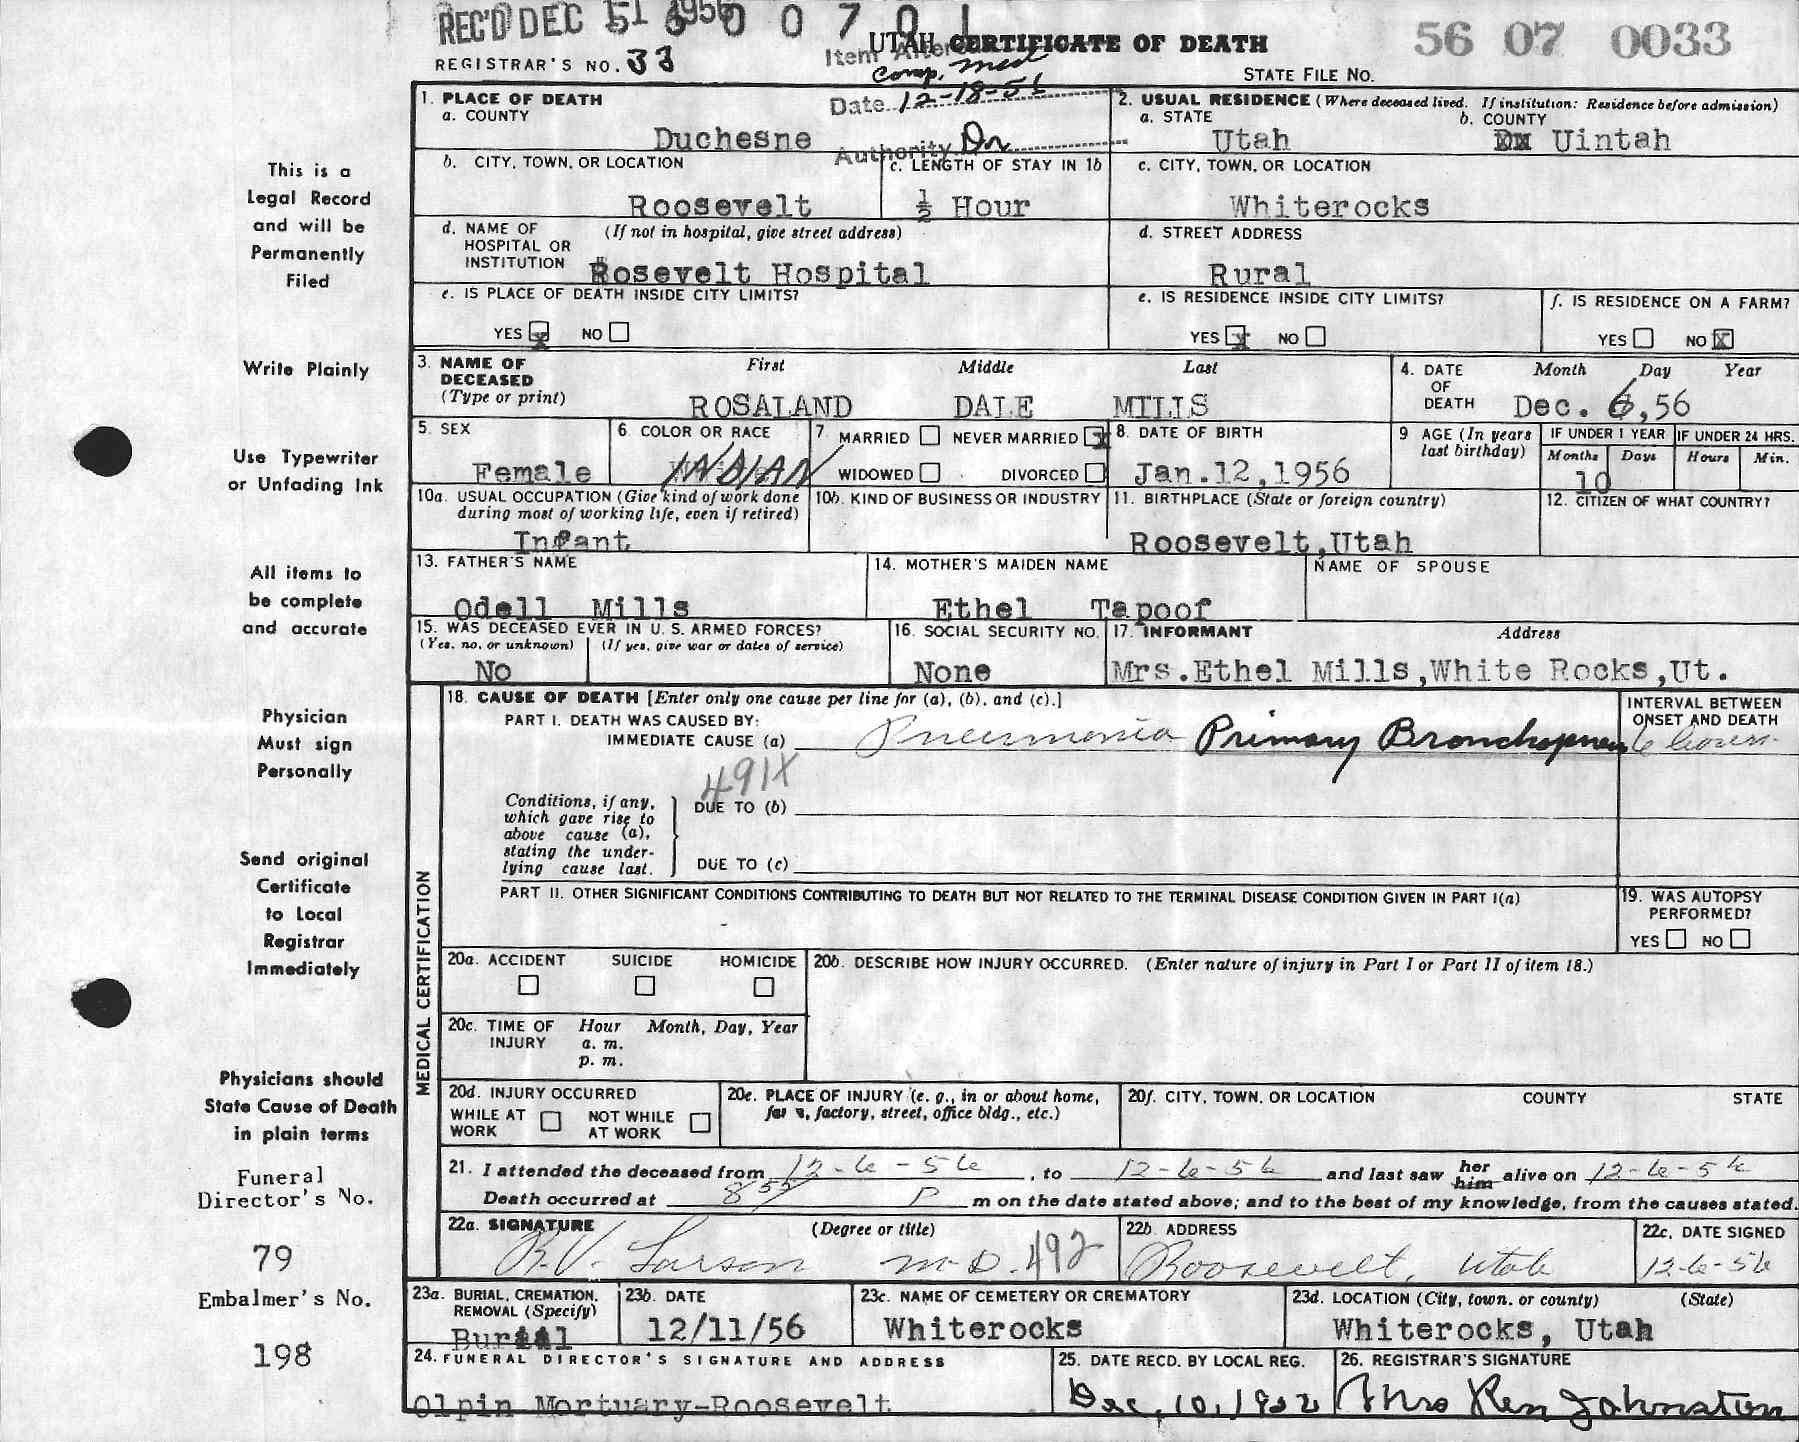 REC'D DEC 1956 0 0 7 0 1
UTAH CERTIFICATE OF DEATH
56 07 0033
REGISTRAR'S NO. 33
Item Altered
Comp. med
STATE FILE NO.
Date 12-18-56
Authority Dr
1. PLACE OF DEATH
a. COUNTY
Duchesne
2. USUAL RESIDENCE (Where deceased lived. If institution: Residence before admission)
a. STATE
Utah
b. COUNTY
Uintah
b. CITY, TOWN, OR LOCATION
Roosevelt
c. LENGTH OF STAY IN 1b
½ Hour
c. CITY, TOWN, OR LOCATION
Whiterocks
d. NAME OF HOSPITAL OR INSTITUTION
(If not in hospital, give street address)
Rosevelt Hospital
d. STREET ADDRESS
Rural
e. IS PLACE OF DEATH INSIDE CITY LIMITS?
YES x NO
e. IS RESIDENCE INSIDE CITY LIMITS?
YES x NO
f. IS RESIDENCE ON A FARM?
YES NO X
3. NAME OF DECEASED
(Type or print)
First Middle Last
ROSALAND DALE MILLS
4. DATE OF DEATH
Month Day Year
Dec. 6,56
5. SEX
Female
6. COLOR OR RACE
INDIAN
7. MARRIED NEVER MARRIED x
WIDOWED DIVORCED
8. DATE OF BIRTH
Jan.12,1956
9 AGE (In years last birthday)
IF UNDER 1 YEAR
Months Days
10
IF UNDER 24 HRS.
Hours Min.
10a. USUAL OCCUPATION (Give kind of work done during most of working life, even if retired)
Infant
10b. KIND OF BUSINESS OR INDUSTRY
11. BIRTHPLACE (State or foreign country)
Roosevelt,Utah
12. CITIZEN OF WHAT COUNTRY?
13. FATHER'S NAME
Odell Mills
14. MOTHER'S MAIDEN NAME
Ethel Tapoof
NAME OF SPOUSE
15. WAS DECEASED EVER IN U. S. ARMED FORCES?
(Yes, no, or unknown) (If yes, give war or dates of service)
No
16. SOCIAL SECURITY NO.
None
17. INFORMANT Address
Mrs.Ethel Mills,White Rocks,Ut.
MEDICAL CERTIFICATION
18. CAUSE OF DEATH [Enter only one cause per line for (a), (b), and (c).]
PART I. DEATH WAS CAUSED BY:
IMMEDIATE CAUSE (a) Pneumonia Primary Bronchopneu
INTERVAL BETWEEN ONSET AND DEATH
6 hours
491X
Conditions, if any, which gave rise to above cause (a), stating the underlying cause last.
DUE TO (b)
DUE TO (c)
PART II. OTHER SIGNIFICANT CONDITIONS CONTRIBUTING TO DEATH BUT NOT RELATED TO THE TERMINAL DISEASE CONDITION GIVEN IN PART I(a)
19. WAS AUTOPSY PERFORMED?
YES NO
20a. ACCIDENT SUICIDE HOMICIDE
20b. DESCRIBE HOW INJURY OCCURRED. (Enter nature of injury in Part I or Part II of item 18.)
20c. TIME OF INJURY
Hour Month, Day, Year
a. m.
p. m.
20d. INJURY OCCURRED
WHILE AT WORK NOT WHILE AT WORK
20e. PLACE OF INJURY (e. g., in or about home, farm, factory, street, office bldg., etc.)
20f. CITY, TOWN, OR LOCATION COUNTY STATE
21. I attended the deceased from 12-6-56, to 12-6-56 and last saw her him alive on 12-6-56
Death occurred at 8 55 P m on the date stated above; and to the best of my knowledge, from the causes stated.
22a. SIGNATURE (Degree or title)
R.V. Larson M.D. 492
22b. ADDRESS
Roosevelt, Utah
22c. DATE SIGNED
12-6-56
23a. BURIAL, CREMATION, REMOVAL (Specify)
Burial
23b. DATE
12/11/56
23c. NAME OF CEMETERY OR CREMATORY
Whiterocks
23d. LOCATION (City, town, or county) (State)
Whiterocks, Utah
24. FUNERAL DIRECTOR'S SIGNATURE AND ADDRESS
Olpin Mortuary-Roosevelt
25. DATE RECD. BY LOCAL REG.
Dec, 10, 19
26. REGISTRAR'S SIGNATURE
Mrs Ken Johnston
This is a
Legal Record
and will be
Permanently
Filed
Write Plainly
Use Typewriter
or Unfading Ink
All items to
be complete
and accurate
Physician
Must sign
Personally
Send original
Certificate
to Local
Registrar
Immediately
Physicians should
State Cause of Death
in plain terms
Funeral
Director's No.
79
Embalmer's No.
198